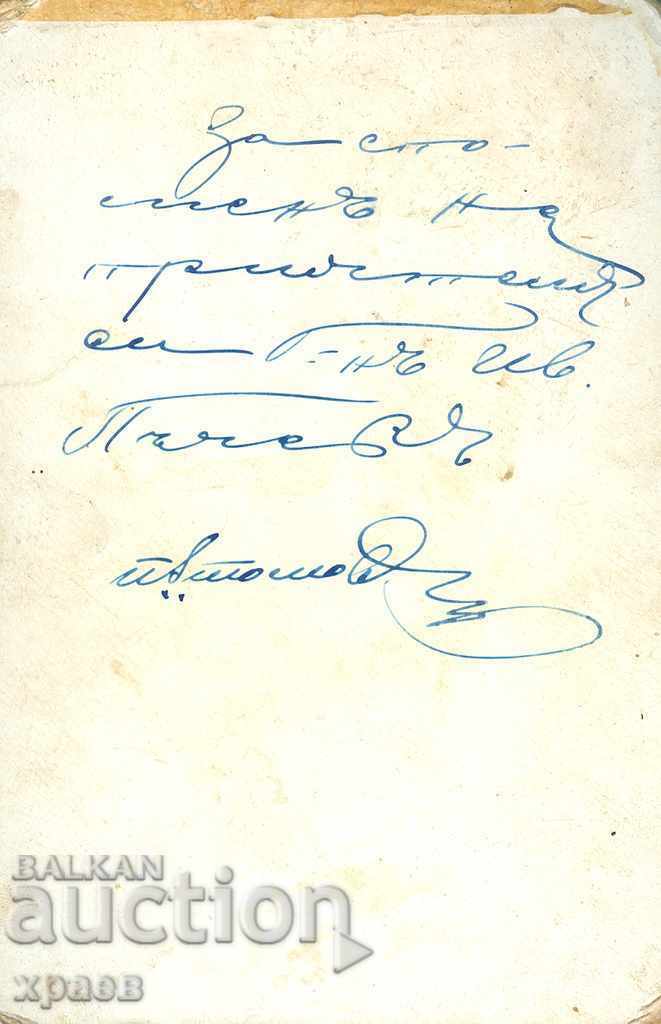 За спо-
менъ на
приятеля
си Г-нъ Ив.
Пъчевъ
BALKAN
auction
храев